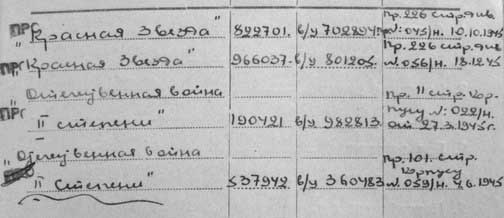 пр. 226 стр. див
прс "Красная Звезда" 822701. в/у 702894 №: 045/н. 10.10.1945
пр. 226 стр. див
прс "Красная Звезда" 966037. в/у 801205 №. 056/н. 18.12.45
"Отечественная война пр. 11 стр. кор-
прс II степени" 190421 в/у 982813 пусу №: 022/н.
от 27.3.1945г.
"Отечественная война пр. 101. стр.
корпусу
II степени" 537942 в/у 360483 №. 059/н. 4.6.1945